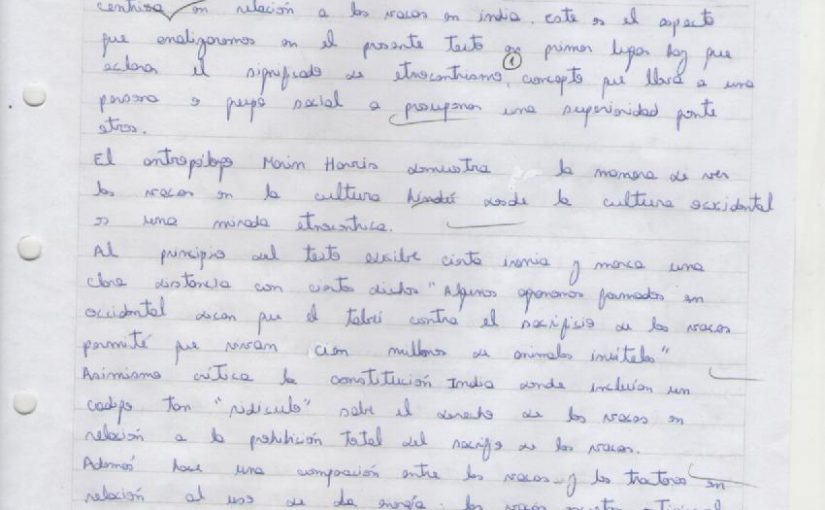 centrica en relación a las vacas en india. este es el aspecto
que analizaremos en el presente texto en primer lugar hay que
aclarar el significado de etnocentrismo, concepto que lleva a una
1
persona o grupo social a presuponer una superioridad frente
otros.
El antropólogo Marin Harris demuestra la manera de ver
las vacas en la cultura hindú desde la cultura occidental
es una mirada etnocentrica.
Al principio del texto escribe cierta ironia y marca una
clara distancia con ciertos dichos "Algunos formados en
occidental dicen que el tabú contra el sacrificio de las vacas
permité que vivan cien millones de animales inútiles"
Asimismo critica la constitución India donde incluian un
codigo tan "ridiculo" sobre el derecho de las vacas en
relación a la prohibición total del de las vacas.
Ademas hace una comparación entre las vacas y los tratores en
relación al uso de la energía: las vacas